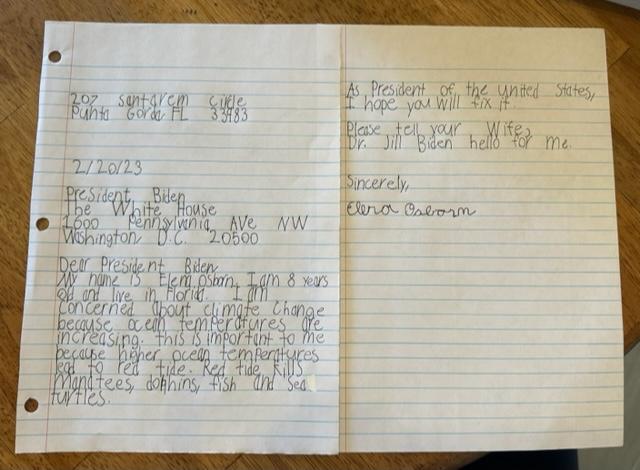 207 santarem circle
Punta Gorda FL 33983
2/20/23
President Biden
The White House
1600 Pennsylvania AVe NW
Washington D.C. 20500
Dear President Biden
My name is Elena Osborn. I am 8 years
old and live in Florida. I am
concerned about climate change
because ocean temperatures are
increasing. this is important to me
because higher ocean temperatures
lead to red tide. Red tide kills
manatees, dolphins, fish and sea
turtles.
As President of the united States,
I hope you will fix it.
Please tell your Wife,
Dr. Jill Biden hello for me.
Sincerely,
Elena Osborn